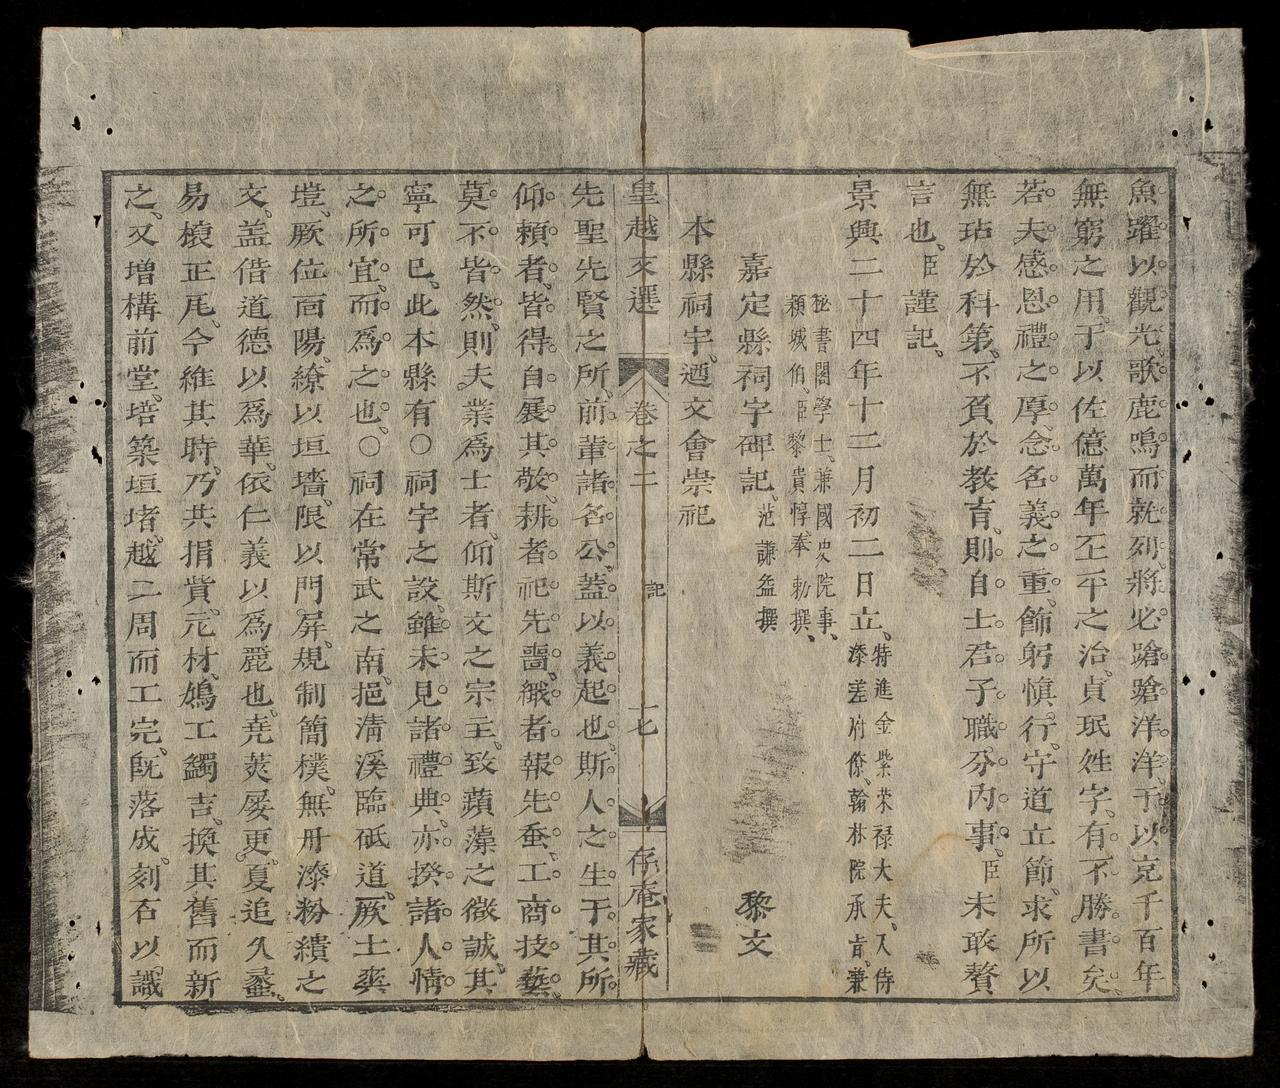 魚躍以觀光、歌鹿鳴而就列、將必蹌蹌洋洋、于以克千百年
無窮之用、于以佐億萬年丕平之治、貞珉姓字、有不勝書矣、
若夫感恩禮之厚、念名義之重、飾躬愼行、守道立節、求所以
無玷於科第、不負於教育、則自士君子職分內事、臣未敢贅
言也、臣謹記、
景興二十四年十二月初二日立、特進金紫荣禄大夫、入侍
添差府僚、翰林院承旨、兼
秘書閣學士、兼國史院事、
穎城伯、臣黎貴惇奉 勅撰、
嘉定縣祠宇碑記、范謙益撰 黎文
本縣祠宇、迺文會崇祀
皇越文選 卷之二 記 十七 存庵家藏
先聖先賢之所、前輩諸名公、蓋以義起也、斯人之生于其所
仰賴者、皆得自展其敬、耕者祀先嗇、織者報先蚕、工商技藝、
莫不皆然、則夫業爲士者、仰斯文之宗主、致蘋藻之微誠、其
寧可已、此本縣有〇祠宇之設、雖未見諸禮典、亦揆諸人情
之所宜、而爲之也、〇祠在常武之南、挹淸溪臨砥道、厥土爽
塏、厥位面陽、繚以垣墻、限以門屏、規制簡樸、無丹漆粉繢之
文、盖借道德以爲華、依仁義以爲麗也、堯蓂屡更、夏追久蠡、
易榱正瓦、今維其時、乃共捐貲、元材、鳩工蠲吉、換其舊而新
之、又增構前堂、培築垣堵、越二周而工完、旣落成、刻石以識